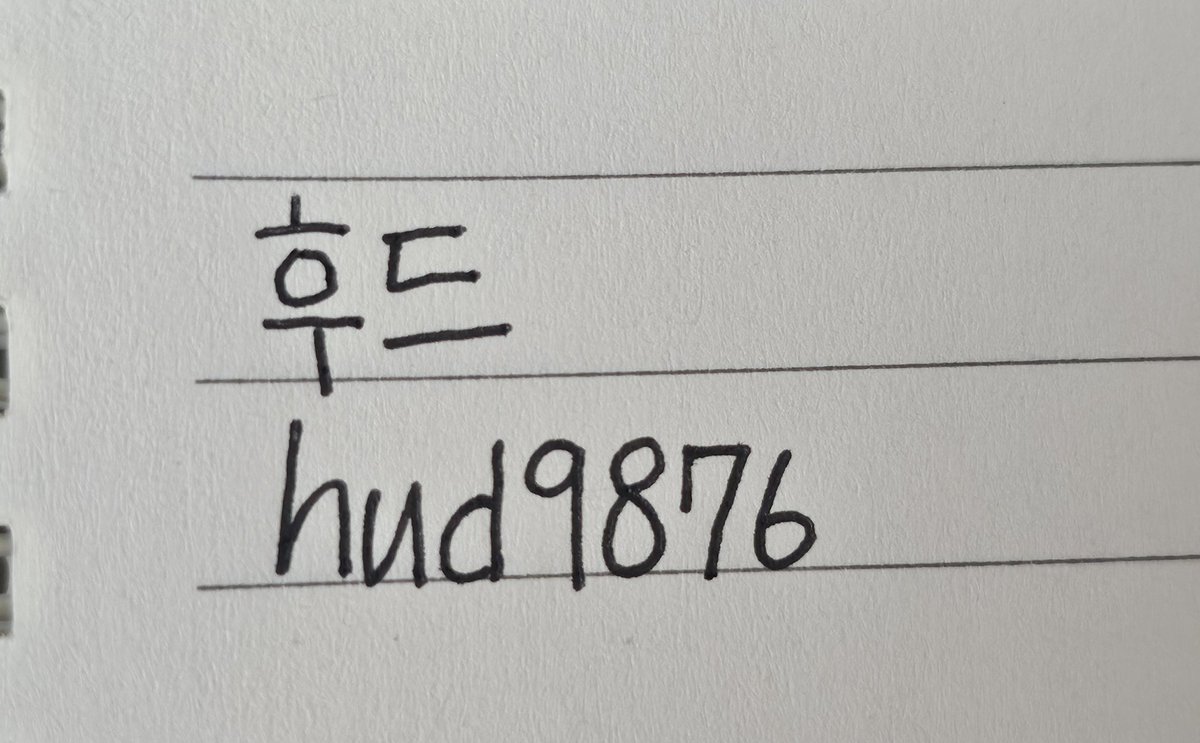 후드
hud9876